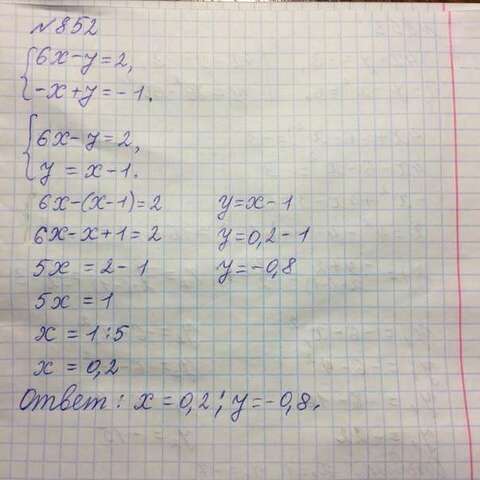 №852
6x-y=2,
-x+y=-1.
6x-y=2,
y=x-1.
6x-(x-1)=2 y=x-1
6x-x+1=2 y=0,2-1
5x=2-1 y=-0,8
5x=1
x=1:5
x=0,2
Ответ: x=0,2; y=-0,8.